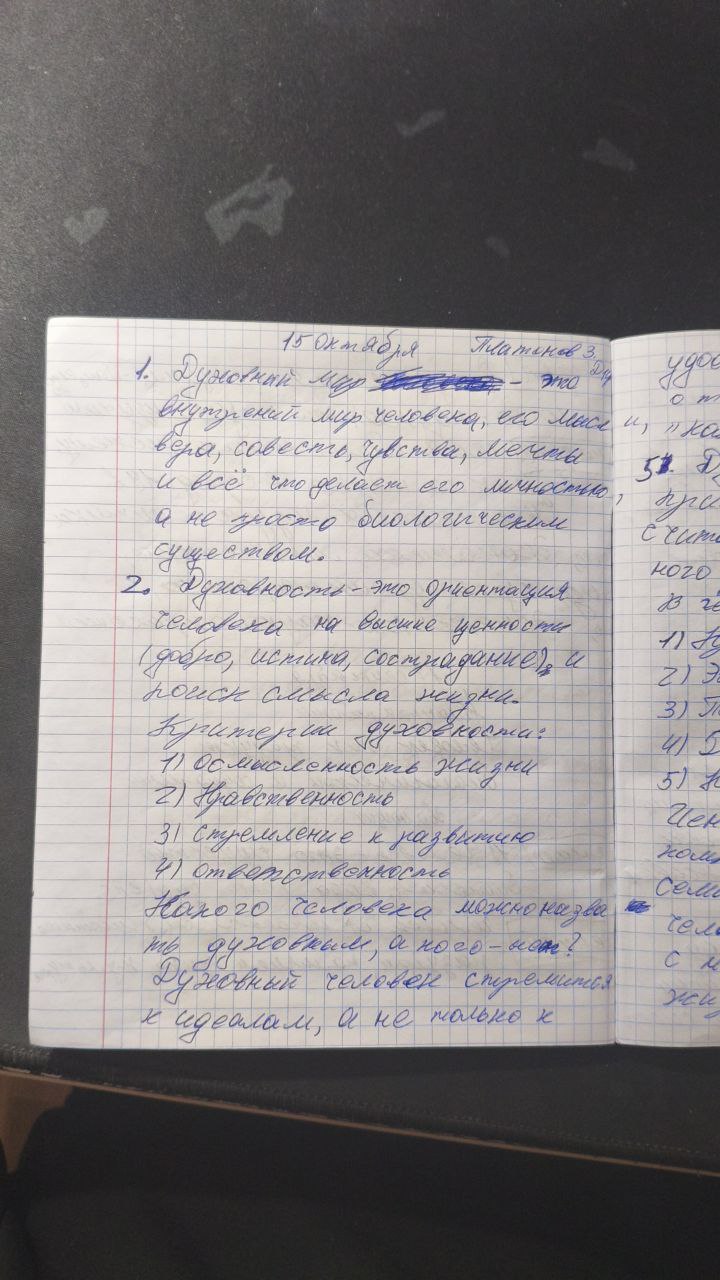 15 Октября Платонов З.
1. Духовный мир - это
внутрений мир человека, его мысли,
вера, совесть, чувства, мечты
и всё что делает его личностью,
а не просто биологическим
существом.
2. Духовность - это ориентация
человека на высшие ценности
(добро, истина, сострадание), и
поиск смысла жизни.
Критерии духовности:
1) осмысленность жизни
2) Нравственность
3) стремление к развитию
4) ответственность
Какого человека можно назва
ть духовным, а кого - нет?
Духовный человек стремится
к идеалам, а не только к
удоб
о т
5. Д
при
счита
ного
В че
1) Ну
2) Э
3) Т
4) Б
5) Н
Цен
Семь
чело
с м
жиз